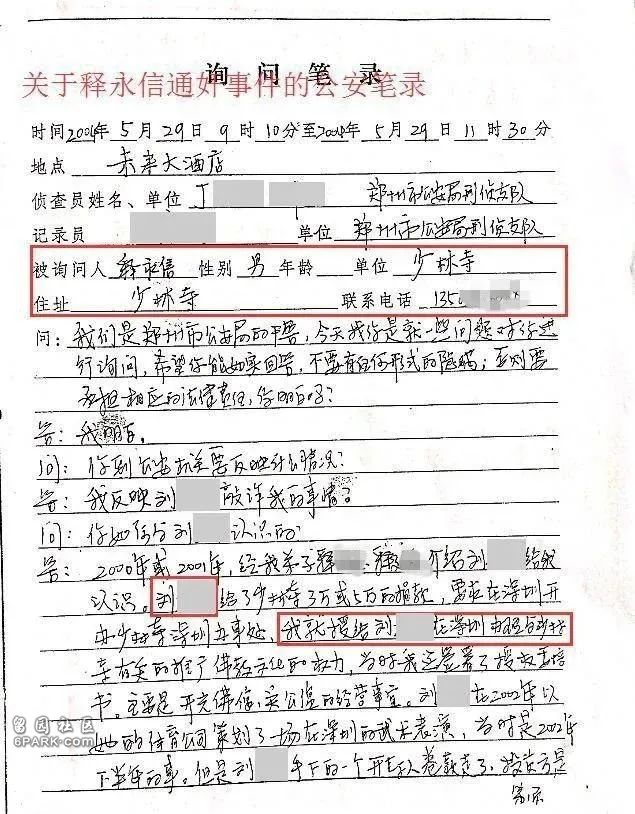 询问笔录
关于释永信通奸事件的公安笔录
时间2004年5月29日9时10分至2004年5月29日11时30分
地点 未来大酒店
侦查员姓名、单位 丁 郑州市公安局刑侦支队
记录员 单位 郑州市公安局刑侦支队
被询问人 释永信 性别 男 年龄 单位 少林寺
住址 少林寺 联系电话 135
问：我们是郑州市公安局的干警，今天找你是就一些问题对你进
行询问，希望你能如实回答，不要有任何形式的隐瞒，否则要
承担相应的法律责任，你明白吗？
答：我明白。
问：你到公安机关要反映什么情况？
答：我反映刘 敲诈我的事情？
问：你如何与刘 认识的
答：2000年或2001年，经我弟子释 释 介绍刘 给我
认识。刘 给了少林寺3万或5万的捐款，要在深圳开
办少林寺深圳办事处，我就授给刘 在深圳办理与少林
寺有关的推广佛教文化的权力，当时我还签署了授权委信
书。主要是开光佛信，卖公德的经营事宜。刘 在2002年以
他的体育公司策划了一场在深圳的武术表演，当时是2002年
下半年的事。但是刘 手下的一个开车人卷款走了，投资方是
第1页
留园社区
6PARK.COM